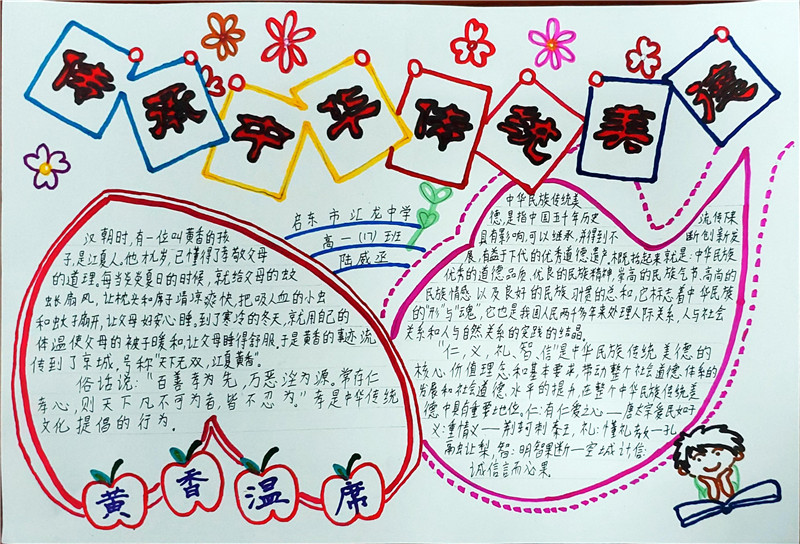 传承中华传统美德
启东市汇龙中学
高一(17)班
陆威丞
汉朝时,有一位叫黄香的孩
子,是江夏人。他九岁,已懂得了孝敬父母
的道理。每当炎炎夏日的时候,就给父母的蚊
帐扇风,让枕头和席子清凉爽快,把吸人血的小虫
和蚊子扇开,让父母好安心睡,到了寒冷的冬天,就用自己的
体温使父母的被子暖和,让父母睡得舒服。于是黄香的事迹流
传到了京城,号称"天下无双,江夏黄香"。
俗话说:"百善孝为先,万恶淫为源。常存仁
孝心,则天下凡不可为者,皆不忍为。"孝是中华传统
文化提倡的行为。
黄香温席
中华民族传统美
德,是指中国五千年历史流传下来
具有影响,可以继承,并得到不断创新发
展,有益于下代的优秀道德遗产,概括起来就是:中华民族
优秀的道德品质、优良的民族精神、崇高的民族气节、高尚的
民族情感以及良好的民族习惯的总和,它标志着中华民族
的"形"与"魂"。它也是我国人民两千多年来处理人际关系、人与社会
关系和人与自然关系的实践的结晶。
"仁,义,礼、智、信"是中华民族传统美德的
核心价值理念和基本要求,带动整个社会道德体系的
发展和社会道德水平的提升,在整个中华民族传统美
德中具有重要地位。仁:有仁爱之心——唐太宗爱民如子
义:重情义——荆轲刺秦王,礼:懂礼孝敬—孔
融让梨,智:明智果断—空城计信:
诚信言而必果